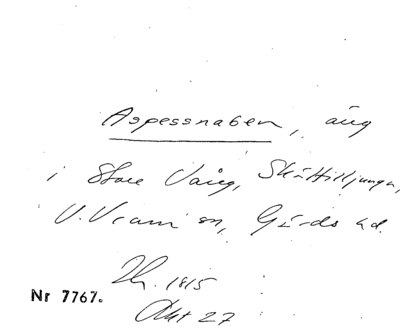 Aspessnaben, äng
i Store Vång, Skättilljunga,
V. Vram sn, Gärds hd.
Zh. 1815
Akt 27
Nr 7767.